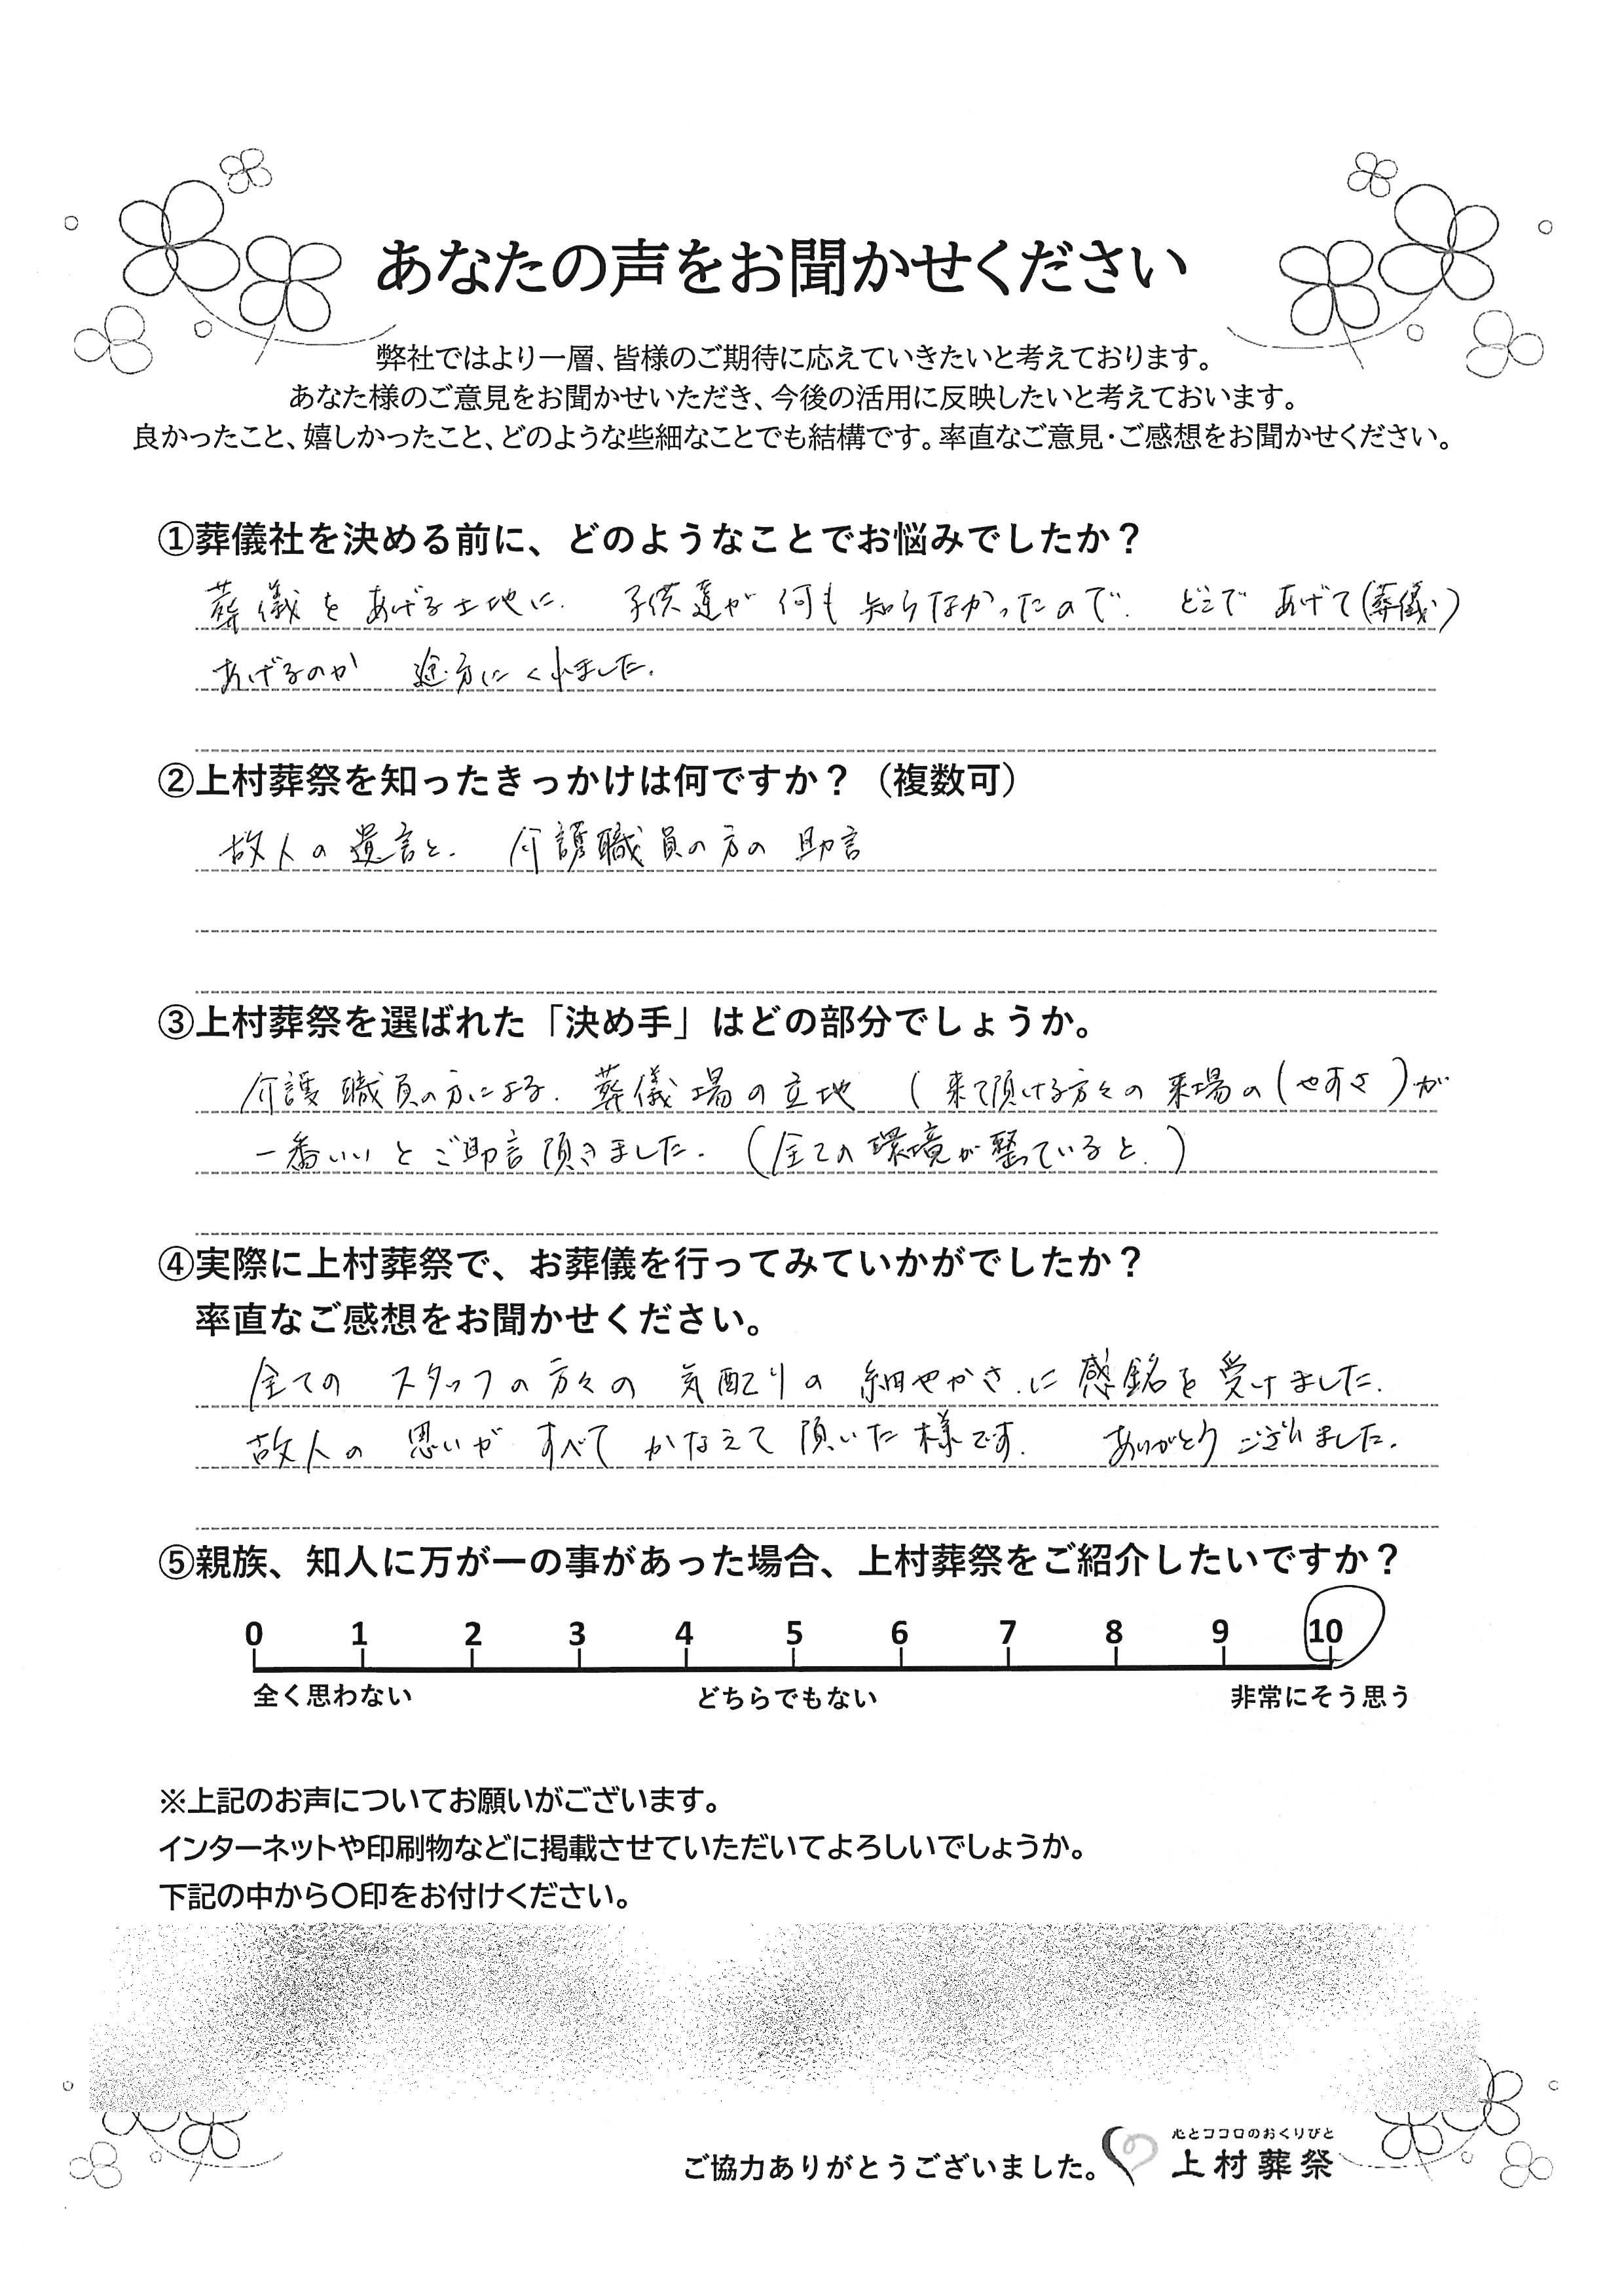 あなたの声をお聞かせください
弊社ではより一層、皆様のご期待に応えていきたいと考えております。
あなた様のご意見をお聞かせいただき、今後の活用に反映したいと考えておいます。
良かったこと、嬉しかったこと、どのような些細なことでも結構です。率直なご意見・ご感想をお聞かせください。
①葬儀社を決める前に、どのようなことでお悩みでしたか？
葬儀をあげる土地に、子供達が何も知らなかったので、どこであげて(葬儀)
あげるのか 途方にくれました。
②上村葬祭を知ったきっかけは何ですか？（複数可）
故人の遺言と、介護職員の方の助言
③上村葬祭を選ばれた「決め手」はどの部分でしょうか。
介護職員の方による、葬儀場の立地 (来て頂ける方々の来場の(やすさ)が
一番いいとご助言頂きました。(全ての環境が整っていると。)
④実際に上村葬祭で、お葬儀を行ってみていかがでしたか？
率直なご感想をお聞かせください。
全てのスタッフの方々の気配りの細やかさに感銘を受けました。
故人の思いがすべてかなえて頂いた様です。ありがとうございました。
⑤親族、知人に万が一の事があった場合、上村葬祭をご紹介したいですか？
0 1 2 3 4 5 6 7 8 9 10
全く思わない どちらでもない 非常にそう思う
※上記のお声についてお願いがございます。
インターネットや印刷物などに掲載させていただいてよろしいでしょうか。
下記の中から〇印をお付けください。
心とココロのおくりびと
ご協力ありがとうございました。 上村葬祭